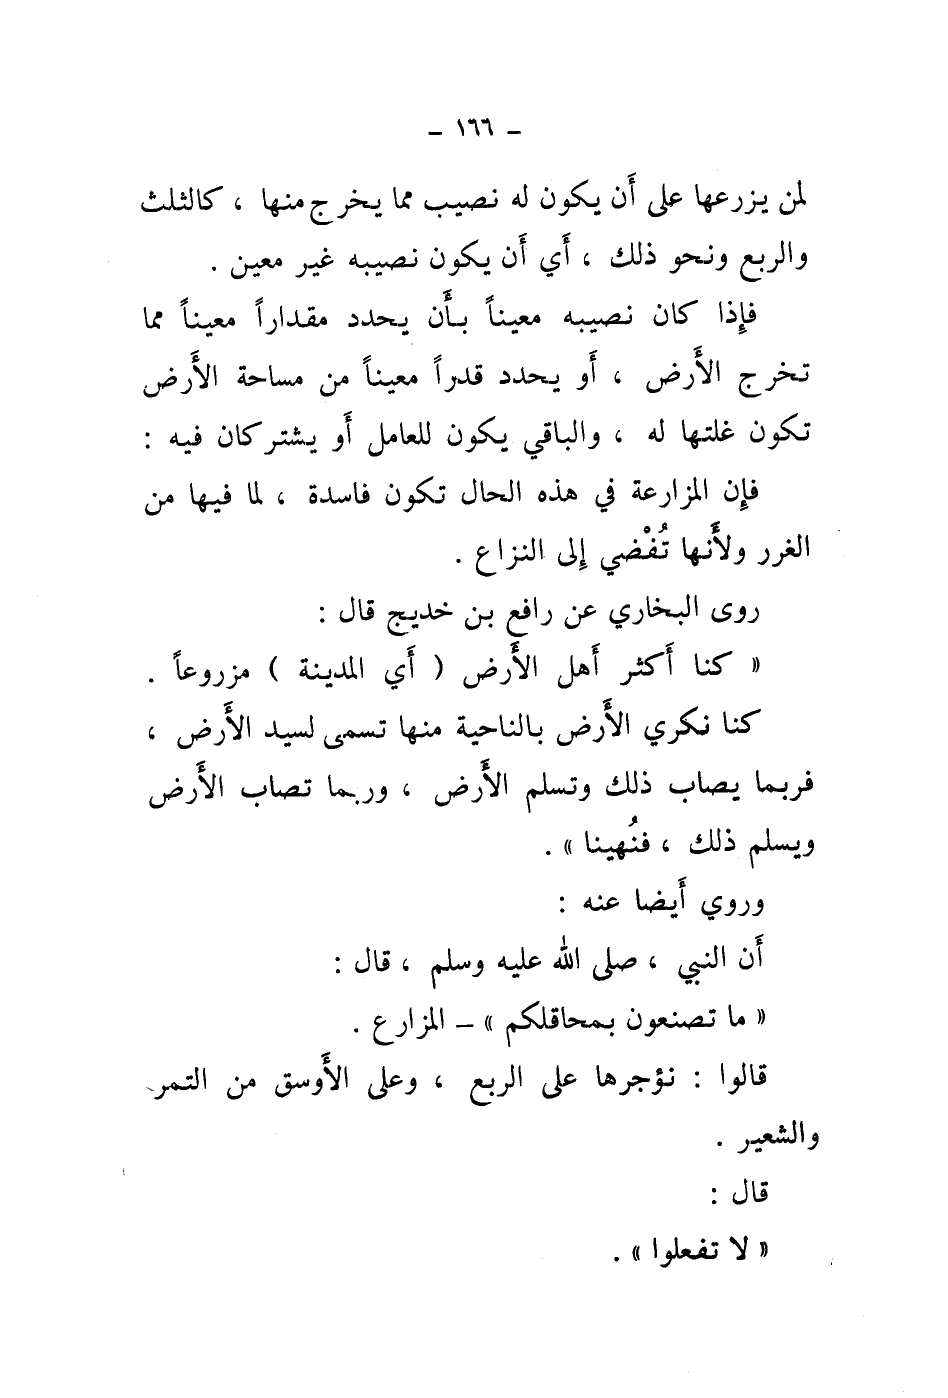 – ١٦٦ –
لمن يزرعها على أَن يكون له نصيب مما يخرج منها ، كالثلث
والربع ونحو ذلك ، أَي أَن يكون نصيبه غير معين .
فإِذا كان نصيبه معيناً بأَن يحدد مقداراً معيناً مما
تخرج الأَرض ، أَو يحدد قدراً معيناً من مساحة الأَرض
تكون غلتها له ، والباقي يكون للعامل أَو يشتركان فيه :
فإِن المزارعة في هذه الحال تكون فاسدة ، لما فيها من
الغرر ولأَنها تُفْضي إِلى النزاع .
روى البخاري عن رافع بن خديج قال :
« كنا أَكثر أَهل الأَرض ( أَي المدينة ) مزروعاً .
كنا نكري الأَرض بالناحية منها تسمى لسيد الأَرض ،
فربما يصاب ذلك وتسلم الأَرض ، وربما تصاب الأَرض
ويسلم ذلك ، فنُهينا » .
وروي أَيضا عنه :
أَن النبي ، صلى الله عليه وسلم ، قال :
« ما تصنعون بمحاقلكم » – المزارع .
قالوا : نؤجرها على الربع ، وعلى الأَوسق من التمر
والشعير .
قال :
« لا تفعلوا » .